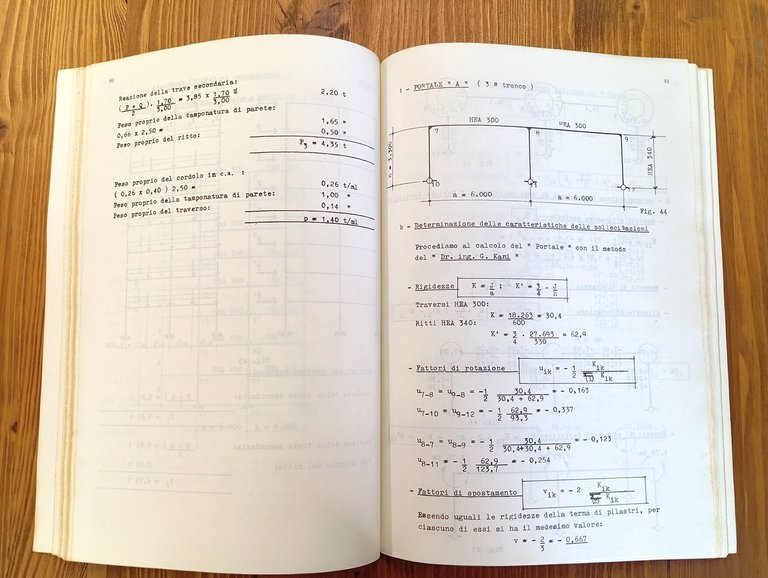 80
Reazione della trave secondaria:
( P + Q / 2 ) . 1,70 / 3,00 = 3,85 x 1,70 / 3,00 = 2,20 t
Peso proprio della tamponatura di parete:
0,66 x 2,50 = 1,65 "
Peso proprio del ritto: 0,50 "
P3 = 4,35 t
Peso proprio del cordolo in c.a. :
( 0,26 x 0,40 ) 2,50 = 0,26 t/ml
Peso proprio della tamponatura di parete: 1,00 "
Peso proprio del traverso: 0,14 "
p = 1,40 t/ml
81
1 - PORTALE " A " ( 3 º tronco )
HEA 300 HEA 300
7 8 9
h = 3,300
HEA 340
10
a = 6.000 a = 6.000
Fig. 44
b - Determinazione delle caratteristiche delle sollecitazioni
Procediamo al calcolo del " Portale " con il metodo
del " Dr. ing. G. Kani "
- Rigidezze K = J / a ; K' = 3 / 4 . J / h
Traversi HEA 300:
K = 18.263 / 600 = 30,4
Ritti HEA 340:
K' = 3 / 4 . 27.693 / 330 = 62,9
- Fattori di rotazione uik = - 1 / 2 Kik / Σ(i) Kik
u7-8 = u9-8 = -1 / 2 30,4 / 30,4 + 62,9 = - 0,163
u7-10 = u9-12 = - 1 / 2 62,9 / 93,3 = - 0,337
u8-7 = u8-9 = - 1 / 2 30,4 / 30,4+30,4 + 62,9 = - 0,123
u8-11 = - 1 / 2 62,9 / 123,7 = - 0,254
- Fattori di spostamento vik = - 2 Kik / Σ Kik
Essendo uguali le rigidezze della terna di pilastri, per
ciascuno di essi si ha il medesimo valore:
v = - 2 / 3 = - 0,667